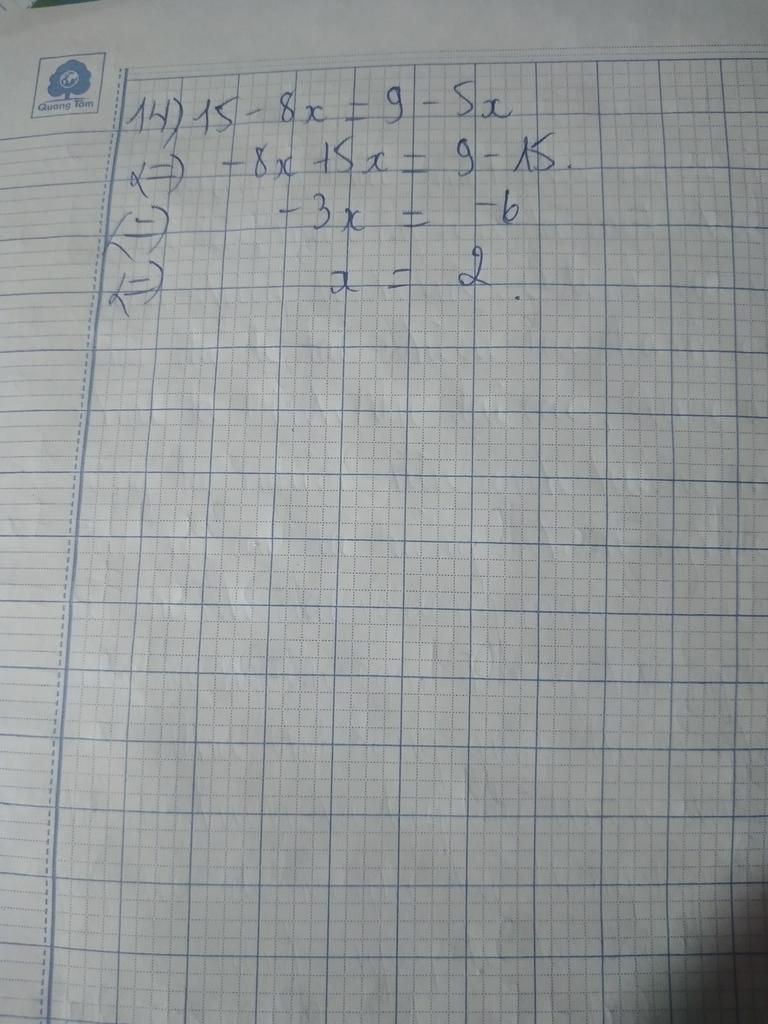 Quang Tâm
14) 15 - 8x = 9 - 5x
<=> -8x +5x = 9 - 15.
<=> -3x = -6
<=> x = 2.